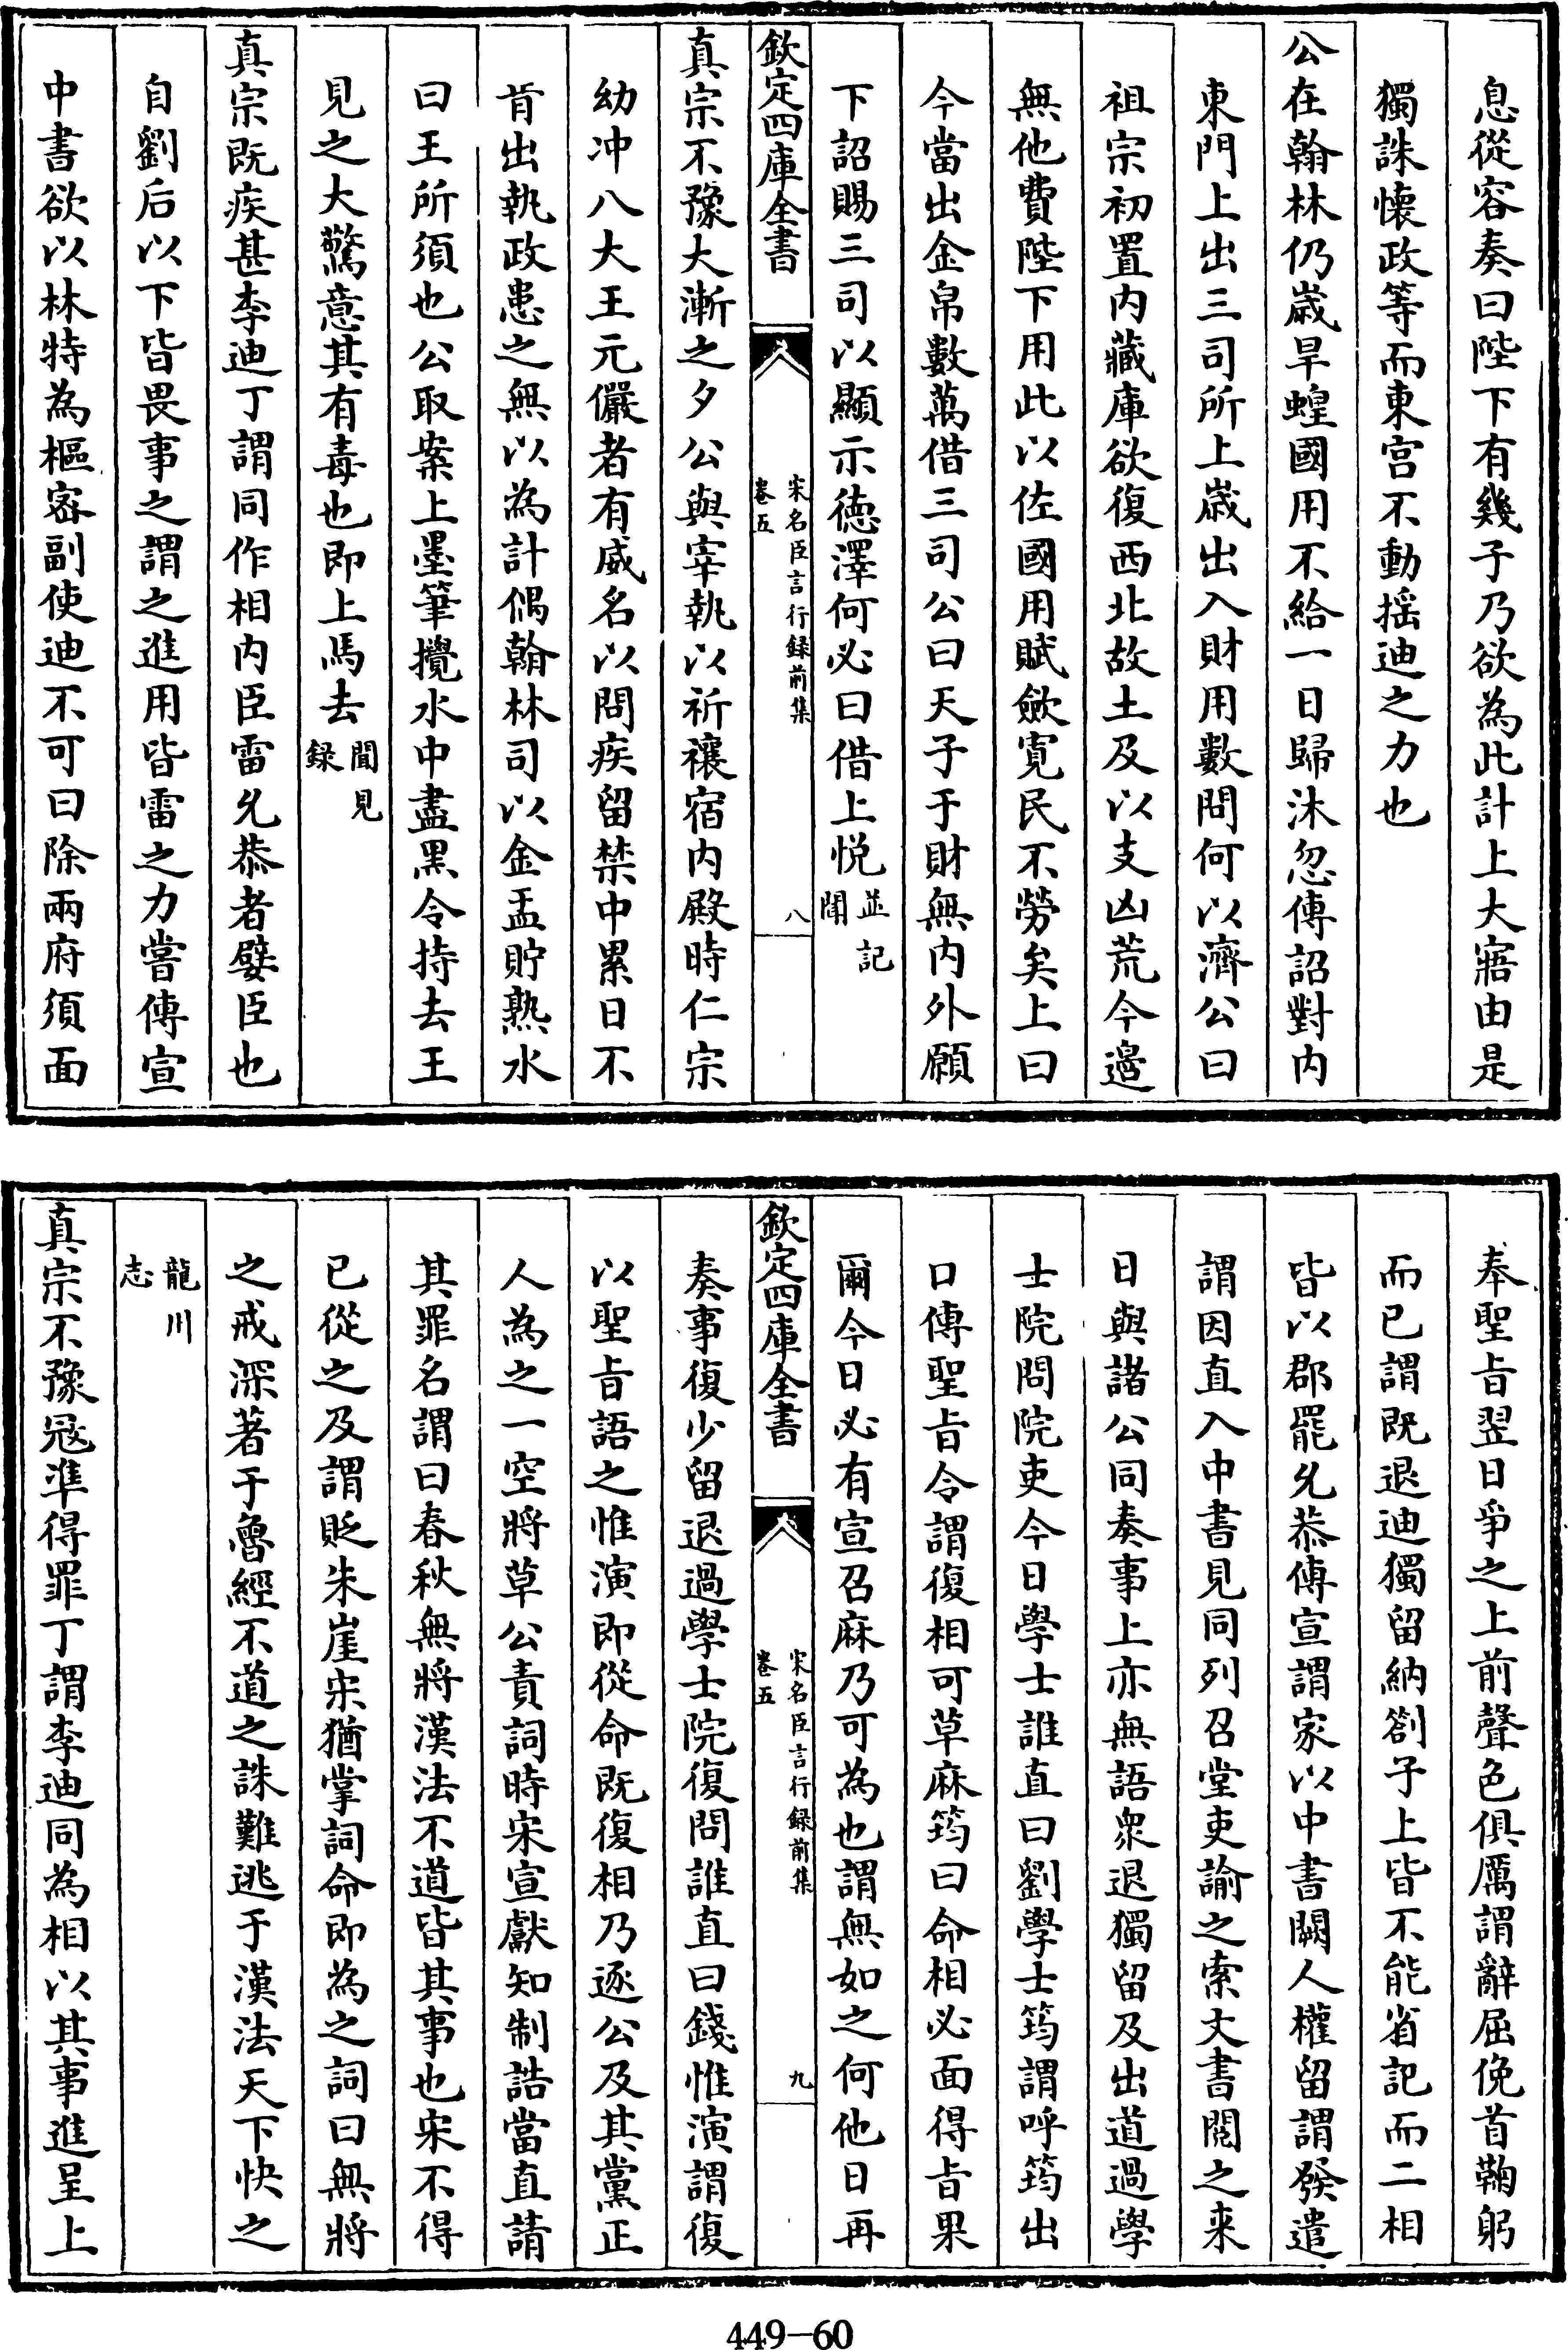 息從容奏曰陛下有幾子乃欲為此計上大寤由是
獨誅懷政等而東宫不動揺迪之力也
公在翰林仍歳旱蝗國用不給一日歸沐忽傳詔對内
東門上出三司所上歳出入財用數問何以濟公曰
祖宗初置内藏庫欲復西北故土及以支凶荒今邉
無他費陛下用此以佐國用賦歛寛民不勞矣上曰
今當出金帛數萬借三司公曰天子于財無内外願
下詔賜三司以顯示徳澤何必曰借上悦並記聞
欽定四庫全書
宋名臣言行録前集
卷五
八
真宗不豫大漸之夕公與宰執以祈禳宿内殿時仁宗
幼冲八大王元儼者有威名以問疾留禁中累日不
肯出執政患之無以為計偶翰林司以金盂貯熟水
曰王所須也公取案上墨筆攪水中盡黑令持去王
見之大驚意其有毒也即上馬去聞見録
真宗既疾甚李迪丁謂同作相内臣雷允恭者嬖臣也
自劉后以下皆畏事之謂之進用皆雷之力嘗傳宣
中書欲以林特為樞宻副使迪不可曰除兩府須面
奉聖旨翌日爭之上前聲色俱厲謂辭屈俛首鞠躬
而已謂既退迪獨留納劄子上皆不能省記而二相
皆以郡罷允恭傳宣謂家以中書闕人權留謂發遣
謂因直入中書見同列召堂吏諭之索文書閲之来
日與諸公同奏事上亦無語衆退獨留及出道過學
士院問院吏今日學士誰直曰劉學士筠謂呼筠出
口傳聖旨令謂復相可草麻筠曰命相必面得旨果
爾今日必有宣召麻乃可為也謂無如之何他日再
欽定四庫全書
宋名臣言行録前集
卷五
九
奏事復少留退過學士院復問誰直曰錢惟演謂復
以聖旨語之惟演即從命既復相乃逐公及其黨正
人為之一空將草公責詞時宋宣獻知制誥當直請
其罪名謂曰春秋無將漢法不道皆其事也宋不得
已從之及謂貶朱崖宋猶掌詞命即為之詞曰無將
之戒深著于魯經不道之誅難逃于漢法天下快之
龍川志
真宗不豫冦凖得罪丁謂李迪同為相以其事進呈上
449-60